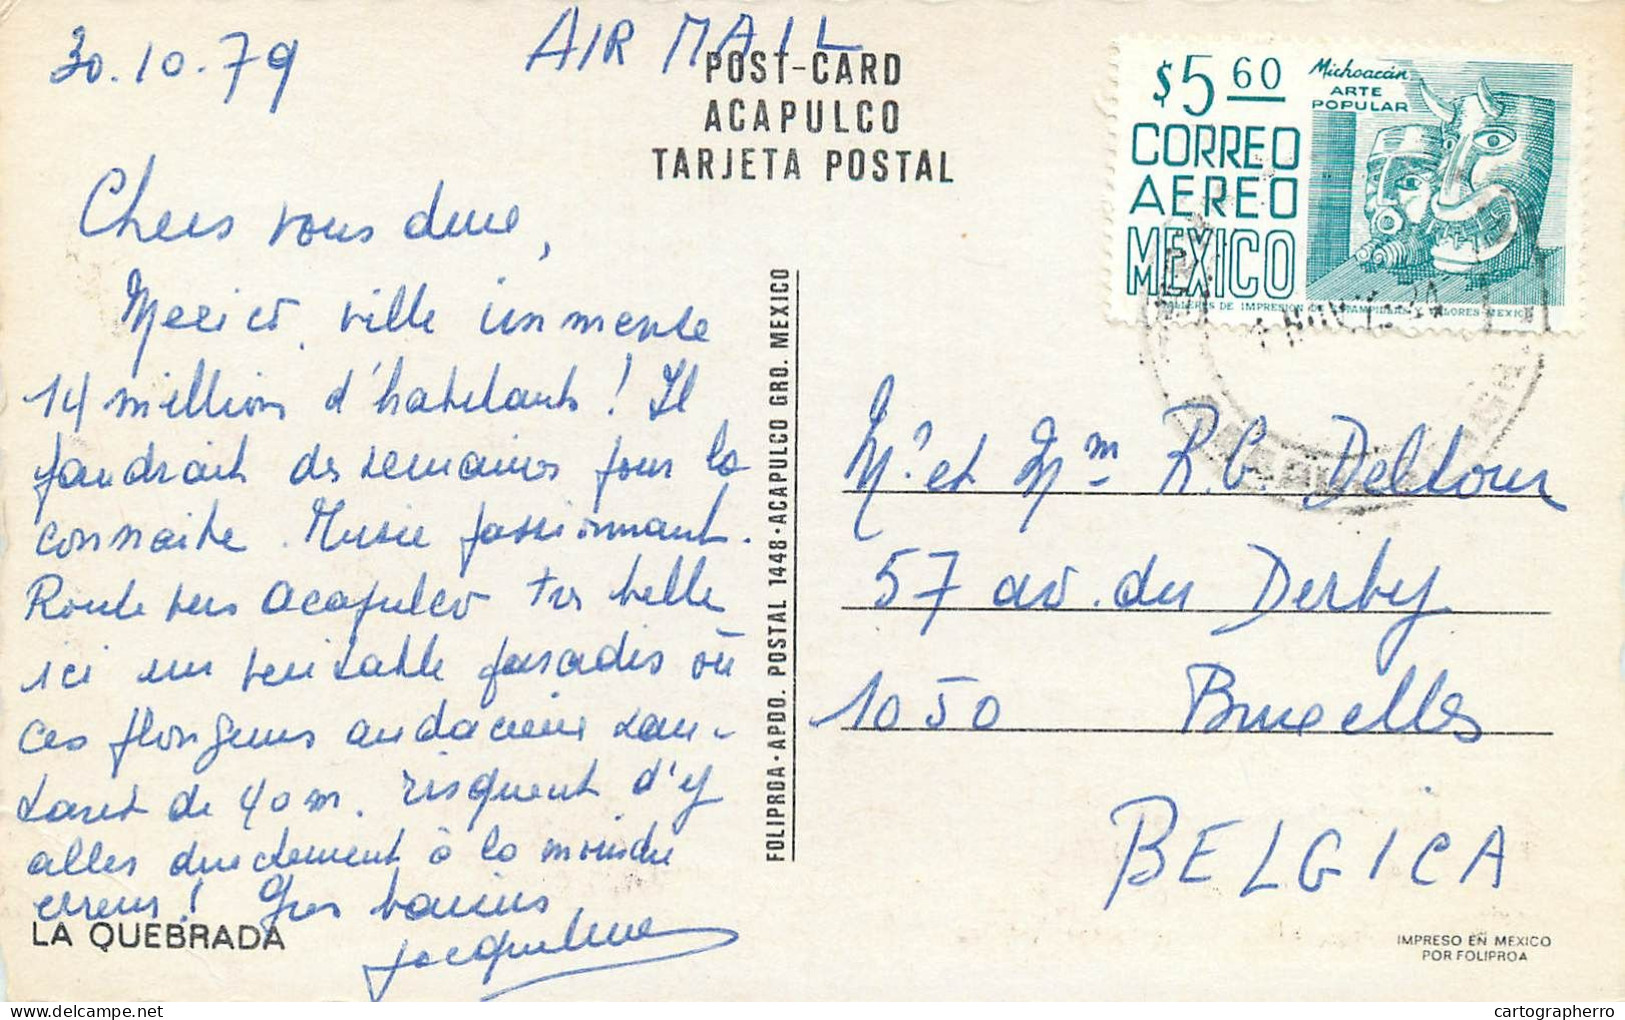 30.10.79
AIR MAIL
POST-CARD
ACAPULCO
TARJETA POSTAL
$5 60
Michoacán
ARTE
POPULAR
CORREO
AEREO
MEXICO
TALLERES DE IMPRESION DE ESTAMPILLAS Y VALORES-MEXICO
Chers vous deux,
Mexico, ville immense
14 millions d'habitants ! Il
faudrait des semaines pour la
connaitre. Musée passionnant.
Route vers Acapulco très belle
ici un veritable paradis où
ces plongeurs audacieux sau-
tant de 40 m. risquent d'y
aller directement à la moindre
erreur ! Gros baisers
Jacqueline
LA QUEBRADA
FOLIPROA · APDO. POSTAL 1448 · ACAPULCO GRO. MEXICO
Mr et Mm R.C. Deltour
57 av. du Derby
1050 Bruxelles
BELGICA
IMPRESO EN MEXICO
POR FOLIPROA
cartographerro